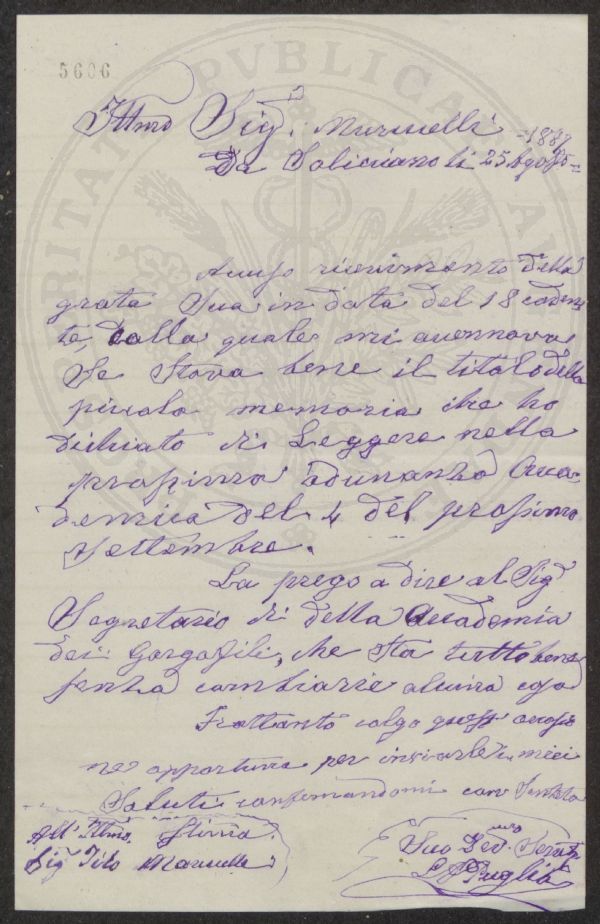 5606
Illmo Sig. Marucelli
1887
Da Soliciano li 25 Agosto
Accuso ricevimento della
grata Sua in data del 18 caden
te, dalla quale mi accennava
Se Stava bene il titolo della
piccola memoria che ho
dichiato di Leggere nella
prossima adunanza Acca
demica del 4 del prossimo
Settembre.
La prego a dire al Sig
Segretario di della Accademia
dei Gorgofili, che Sta tutto bene
senza cambiarie alcuna cosa
Frattanto colgo quest occasio
ne opportuna per inviarle i miei
Saluti confermandomi con Sentita
Stima.
All' Illmo.
Sig Tito Marucelli
Suo Dev.mo Servt
Puglia